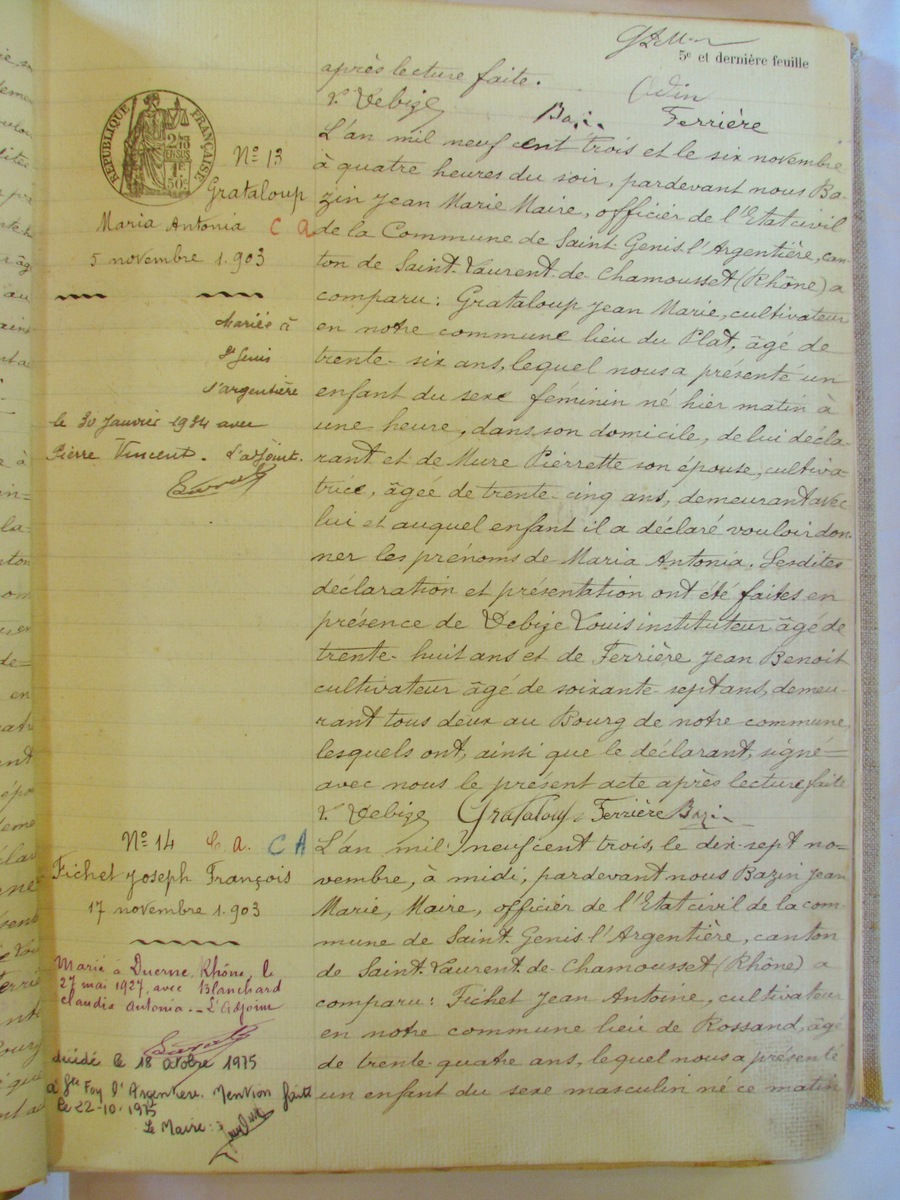 5e et dernière feuille
après lecture faite.
Odin
L. Debize Bazin Ferrière
RÉPUBLIQUE FRANÇAISE
No 13
Grataloup
Maria Antonia C a
5 novembre 1.903
Mariée à
St Genis
l'argentière
le 30 Janvier 1934 avec
Pierre Vincent. L'adjoint.
L'an mil neuf cent trois et le six novembre
à quatre heures du soir, pardevant nous Ba-
zin Jean Marie Maire, officiér de l'Etat civil
de la Commune de Saint Genis l'Argentière, can-
ton de Saint-Laurent-de Chamousset (Rhône) a
comparu: Grataloup Jean Marie, cultivateur
en notre commune lieu du Plat, âgé de
trente-six ans, lequel nous a présenté un
enfant du sexe féminin né hier matin à
une heure, dans son domicile, de lui décla-
rant et de Mure Pierrette son épouse, cultiva-
trice, âgée de trente-cinq ans, demeurant avec
lui et auquel enfant il a déclaré vouloir don-
ner les prénoms de Maria Antonia. Lesdites
déclaration et présentation ont été faites en
présence de Debize Louis instituteur âgé de
trente-huit ans et de Ferrière Jean Benoit
cultivateur âgé de soixante-sept ans, demeu-
rant tous deux au Bourg de notre commune,
lesquels ont, ainsi que le déclarant, signé=
avec nous le présent acte après lecture faite
L. Debize Grataloup Ferrière Bazin
No 14 C. a. C A
Fichet Joseph François
17 novembre 1.903
Marié à Duerne, Rhône, le
27 mai 1927, avec Blanchard
Claudia Antonia.-- L'Adjoint
décidé le 18 octobre 1975
à Ste Foy l'Argentière. Mention faite
le 22-10-1975
Le Maire:
L'an mil neuf cent trois, le dix-sept no-
vembre, à midi, pardevant nous Bazin Jean
Marie, Maire, officiér de l'Etat civil de la com-
mune de Saint-Genis-l'Argentière, canton
de Saint-Laurent-de-Chamousset (Rhône) a
comparu: Fichet Jean Antoine, cultivateur
en notre commune lieu de Rossand, âgé
de trente-quatre ans, lequel nous a présenté
un enfant du sexe masculin né ce matin